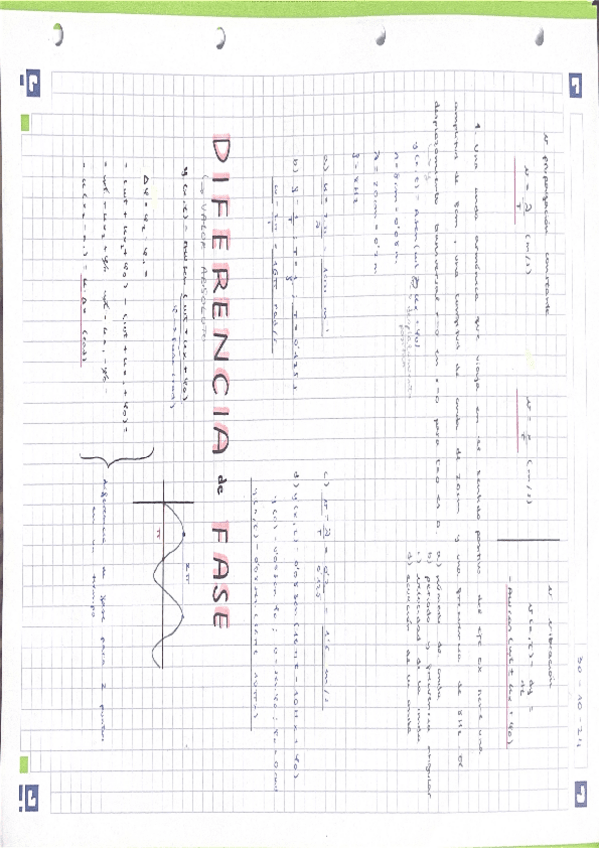 30-10-24
v propagación constante
v = λ/T (m/s)
v = e/t (m/s)
v vibración
v(x,t) = dy/dt
= Aω cos(ωt ± kx + φ0)
1. Una onda armónica que viaja en el sentido positivo del eje OX tiene una
amplitud de 8cm, una longitud de onda de 20cm y una frecuencia de 8Hz. El
desplazamiento transversal en x=0 para t=0 es 0.
a) número de onda
b) periodo y frecuencia angular
c) velocidad de la onda
d) ecuación de la onda
A = 8cm = 0'08m
λ = 20cm = 0'2m
f = 8Hz
a) k = 2π/λ = 10π m⁻¹
b) f = 1/T ; T = 1/f ; T = 0'125s
ω = 2π/T = 16π rad/s
c) v = λ/T = 0'2/0'125 = 1'6 m/s
d) y(x,t) = 0'08 sen(16πt - 10πx + φ0)
DIFERENCIA de FASE
↳ VALOR ABSOLUTO
y(x,t) = A sen (ωt ± kx + φ0)
Δφ = φ2 - φ1 =
= (ωt + kx2 + φ0) - (ωt + kx1 + φ0) =
= ωt + kx2 + φ0 - ωt - kx1 - φ0 =
= k(x2 - x1) = k Δx (rad)
diferencia de fase para 2 puntos
en un tiempo
2π
π